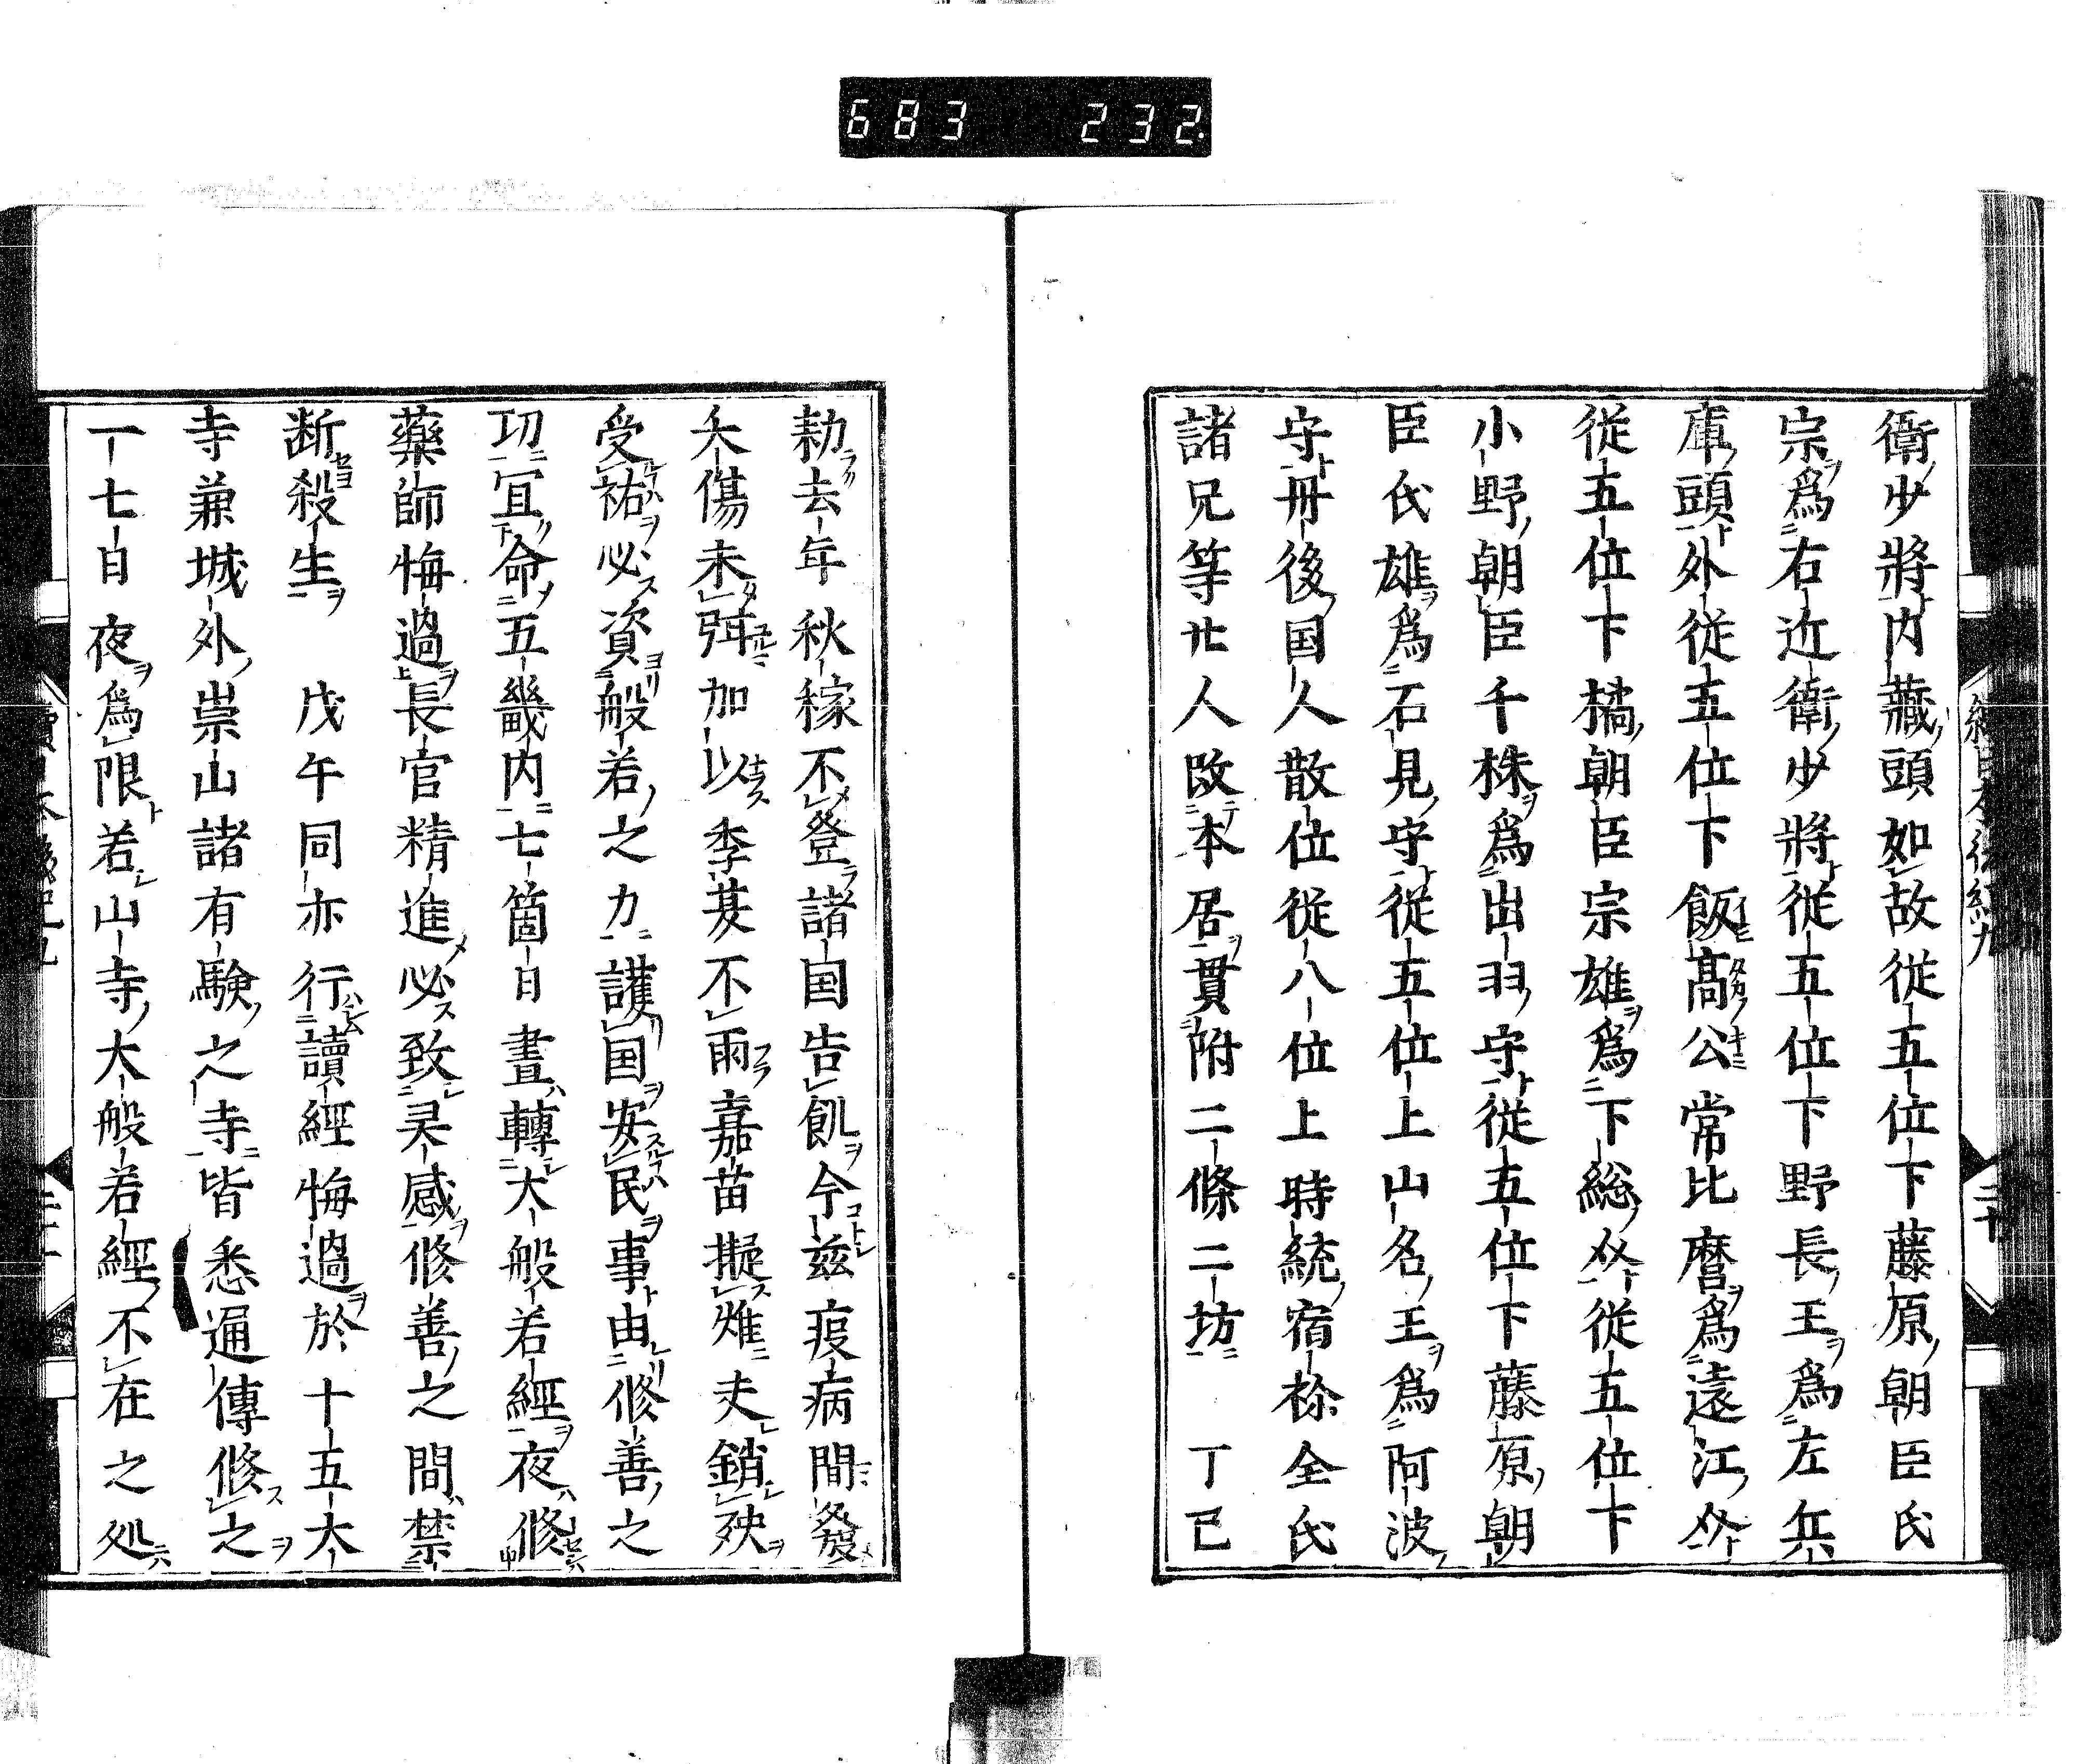 683 232.
衛少將内藏頭如故從五位下藤原朝臣氏
宗爲右近衛少將從五位下野長王爲左兵
庫頭外從五位下飯髙公常比麿爲遠江介
從五位下橘朝臣宗雄爲下総介從五位下
小野朝臣千株爲出羽守從五位下藤原朝
臣氏雄爲石見守從五位上山名王爲阿波
守丹後国人散位從八位上時統宿祢全氏
諸兄等廿人改本居貫附二條二坊 丁巳
勑去年秋稼不登諸国告飢今茲疫病間發
夭傷未弭加以季葼不雨嘉苗擬燋夫銷殃
受祐必資般若之力護国安民事由修善之
功宜命五畿内七箇日晝轉大般若經夜修
藥師悔過長官精進必致灵感修善之間禁
断殺生 戊午同亦行讀經悔過於十五大
寺兼城外崇山諸有驗之寺皆悉遍傳修之
一七日夜爲限若山寺大般若經不在之処